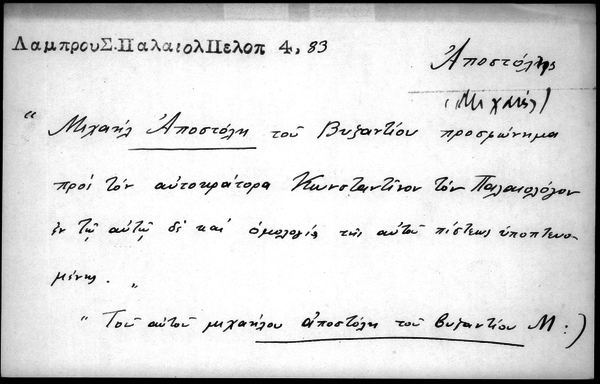 ΛαμπρουΣ.ΠαλαιολΠελοπ 4, 83
Ἀποστόλης
(Μιχαήλ)
" Μιχαὴλ Ἀποστόλη τοῦ Βυζαντίου προσφώνημα
πρὸς τὸν αὐτοκράτορα Κωνσταντῖνον τὸν Παλαιολόγον
ἐν τῷ αὐτῷ δὲ καὶ ὁμολογία τῆς αὐτοῦ πίστεως ὑποπτευο-
μένης. "
" Τοῦ αὐτοῦ μιχαήλου ἀποστόλη τοῦ βυζαντίου Μ :)